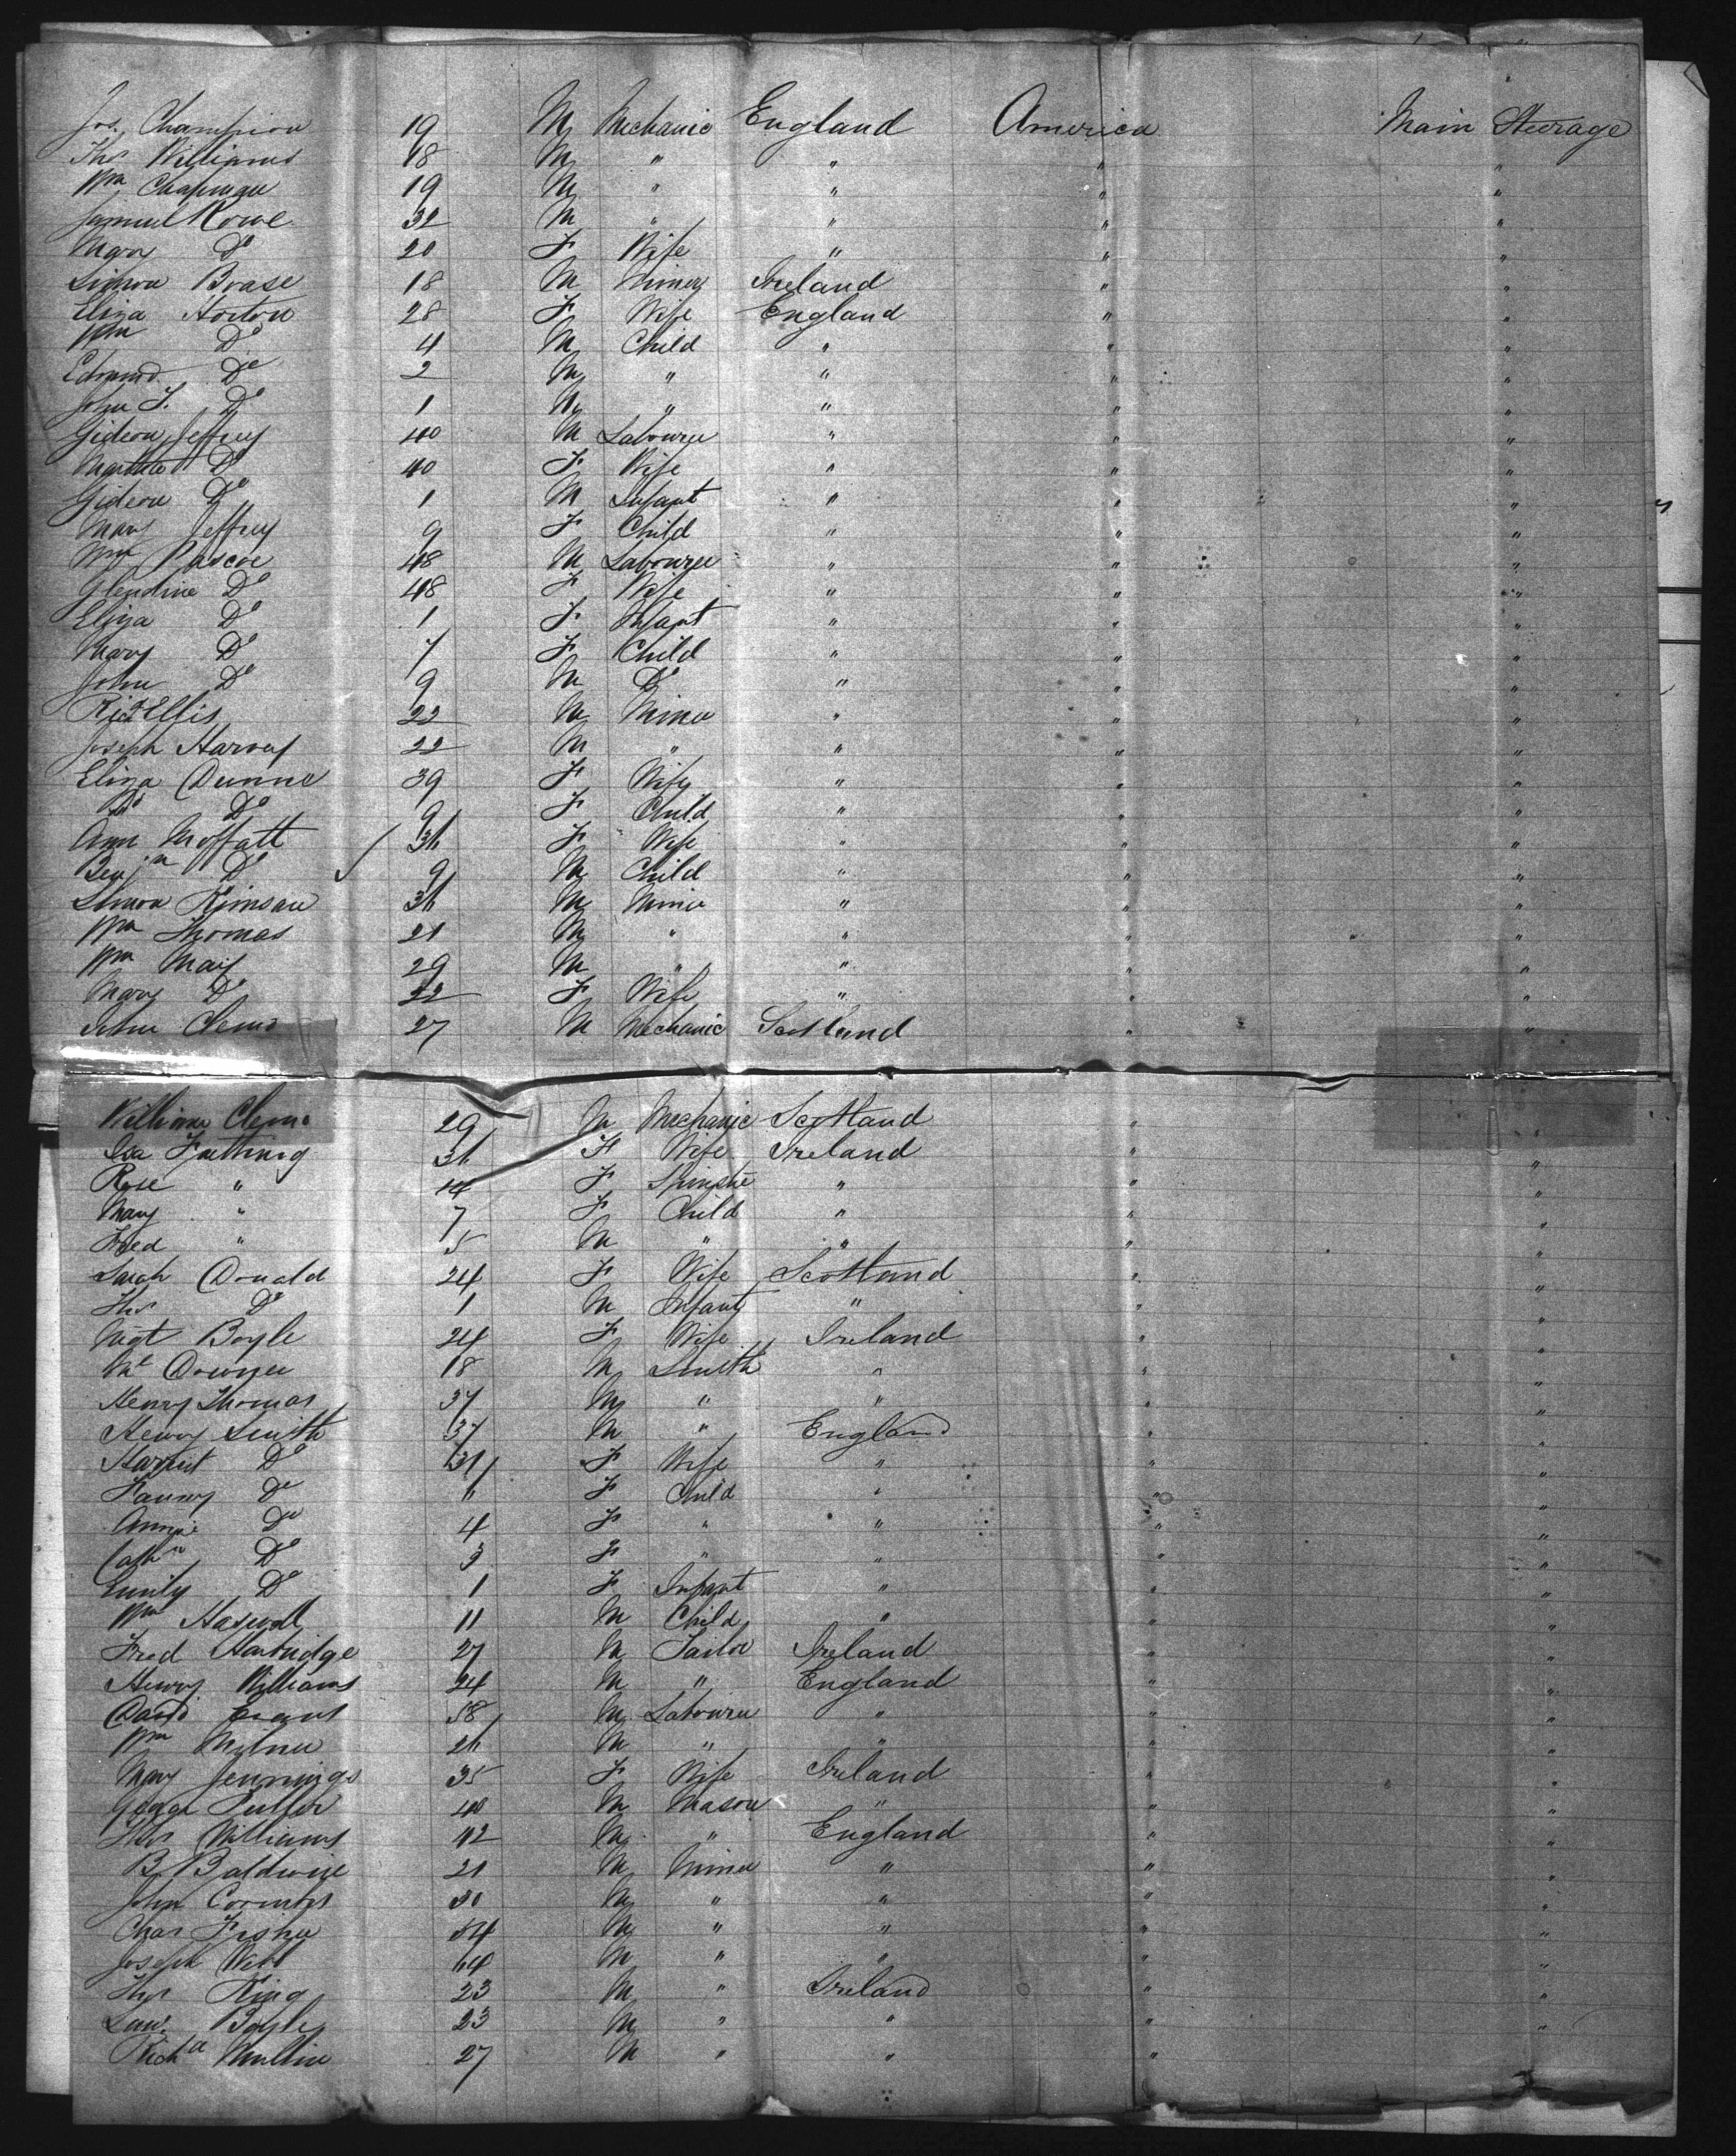 Jos. Champion 19 M Mechanic England America Main Steerage
Thos Williams 18 M " " " "
Wm Chapman 19 M " " " "
Samuel Rowe 32 M " " " "
Mary Do 20 F Wife " " "
Simon Boase 18 M Miner Ireland " "
Eliza Horton 28 F Wife England " "
Wm Do 4 M Child " " "
Edmund Do 2 M " " " "
John T. Do 1 M " " " "
Gideon Jeffrey 40 M Labourer " " "
Do 40 F Wife " " "
Gideon Do 1 M Infant " " "
Mary Jeffrey 9 F Child " " "
Wm Pascoe 48 M Labourer " " "
Glendine Do 48 F Wife " " "
Eliza Do 1 F Infant " " "
Mary Do 7 F Child " " "
John Do 9 M Do " " "
Richd Ellis 22 M Miner " " "
Joseph Harvey 22 M " " " "
Eliza Dunne 39 F Wife " " "
Do Do 9 F Child " " "
Ann Moffatt 36 F Wife " " "
Benjn Do 9 M Child " " "
Simon Kinsau 36 M Miner " " "
Wm Thomas 21 M " " " "
Wm May 29 M " " " "
Mary Do 22 F Wife " " "
John Clemo 27 M Mechanic Scotland " "
William Clemo 29 M Mechanic Scotland " "
Isa Futting 36 F Wife Ireland " "
Rose " 14 F Spinster " " "
Mary " 7 F Child " " "
Fred " 5 M " " " "
Sarah Donald 24 F Wife Scotland " "
Thos Do 1 M Infant " " "
Mgt Boyle 24 F Wife Ireland " "
Mt Downer 18 M Smith " " "
Henry Thomas 37 M " " " "
Henry Smith 37 M " England " "
Harriet Do 31 F Wife " " "
Fanny Do 6 F Child " " "
Annie Do 4 F " " " "
Cathn Do 3 F " " " "
Emily Do 1 F Infant " " "
Wm Haswell 11 M Child " " "
Fred Harbridge 27 M Tailor Ireland " "
Henry Williams 24 M " England " "
David Evans 58 M Labourer " " "
Wm Milner 26 M " " " "
Mary Jennings 35 F Wife Ireland " "
George Fuller 40 M Mason " " "
Thos Williams 42 M " England " "
B. Baldwin 21 M Miner " " "
John 30 M " " " "
Chas Fisher 54 M " " " "
Joseph Webb 60 M " " " "
Thos King 23 M " Ireland " "
Law. Boyle 23 M " " " "
Richd Mullin 27 M " " "